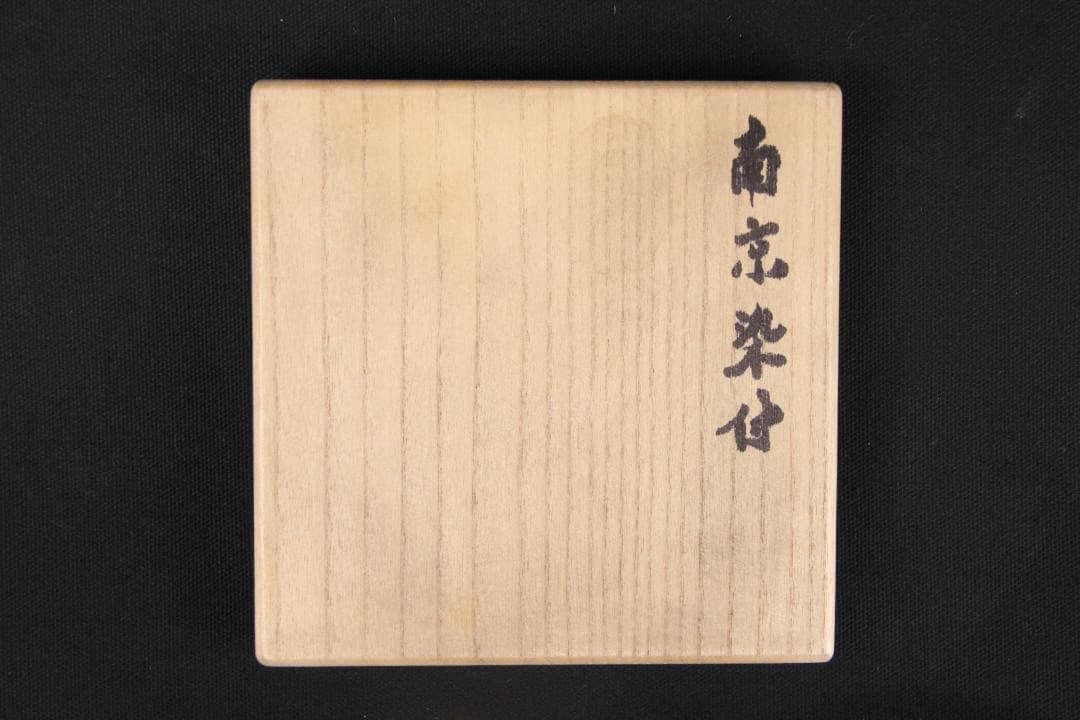 南京染付